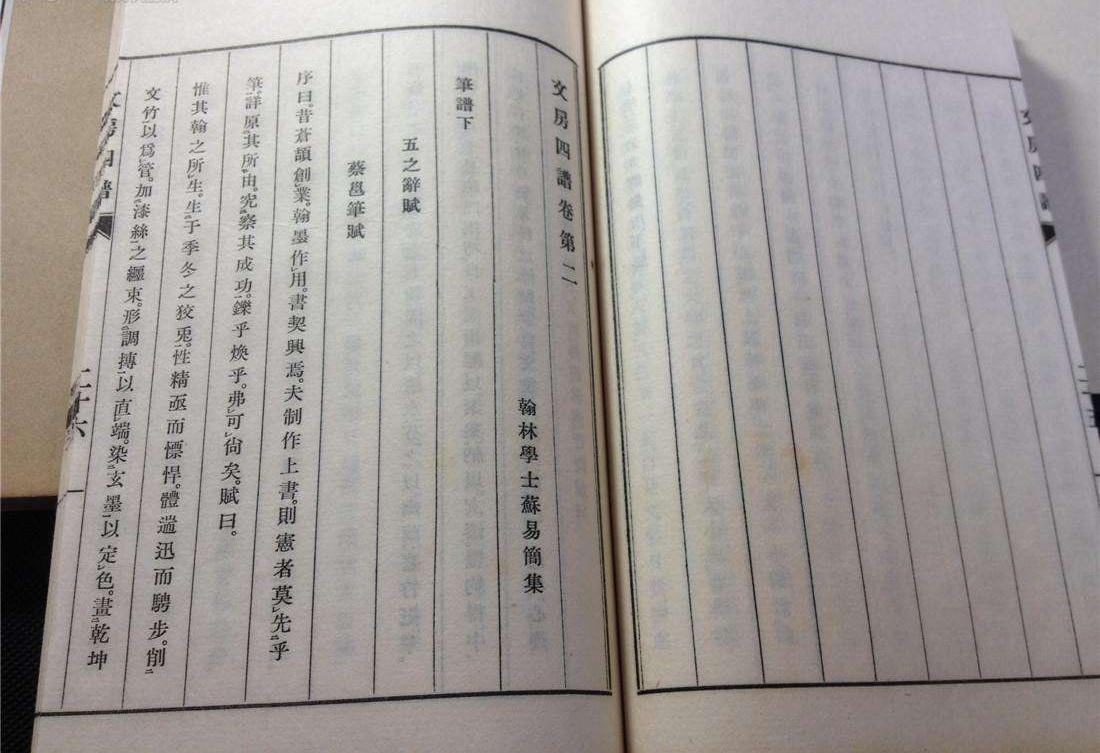 文房四譜卷第二
翰林學士蘇易簡集
筆譜下
五之辭賦
蔡邕筆賦
序曰。昔蒼頡創業。翰墨作用。書契興焉。夫制作上書。則憲者莫先乎
筆。詳原其所由。究察其成功。鑠乎煥乎。弗可尙矣。賦曰。
惟其翰之所生。生于季冬之狡兎。性精亟而慓悍。體遄迅而騁步。削
文竹以爲管。加漆絲之纏束。形調摶以直端。染玄墨以定色。畫乾坤
文房四譜
二十六